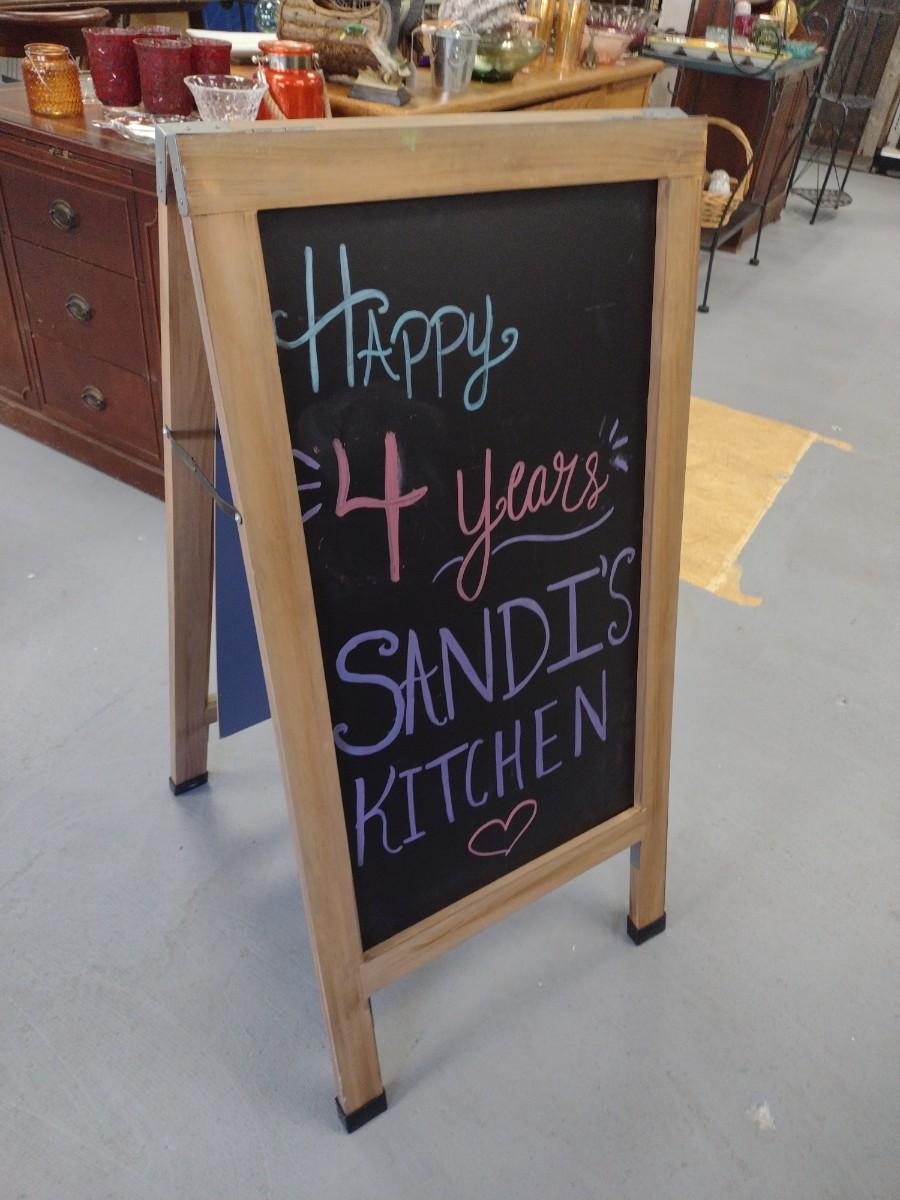 Happy
4 Years
SANDI'S
KITCHEN